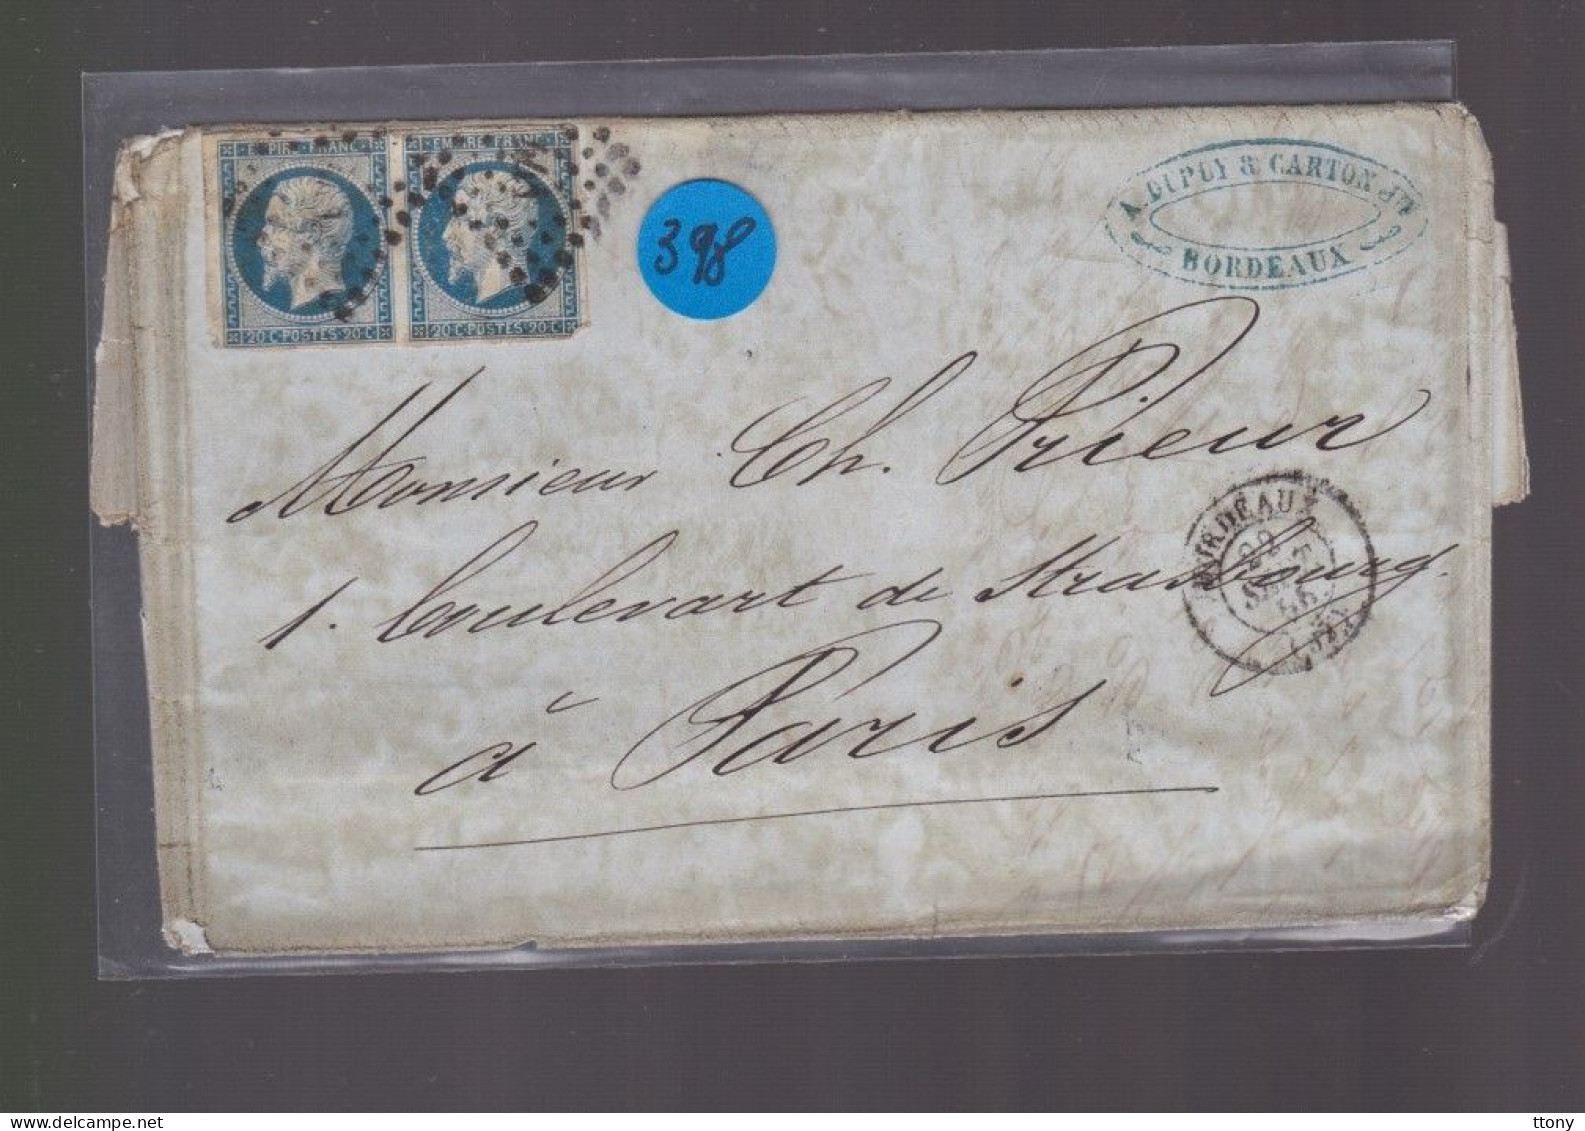 EMPIRE FRANC
EMPIRE FRANC
20 C·POSTES·20 C
20 C·POSTES·20 C
398
A. DUPUY & CARTON Jne
BORDEAUX
Monsieur Ch. Prieur
1. boulevart de Strasbourg.
à Paris
BORDEAUX
SEPT
56
ttony
delcampe.net